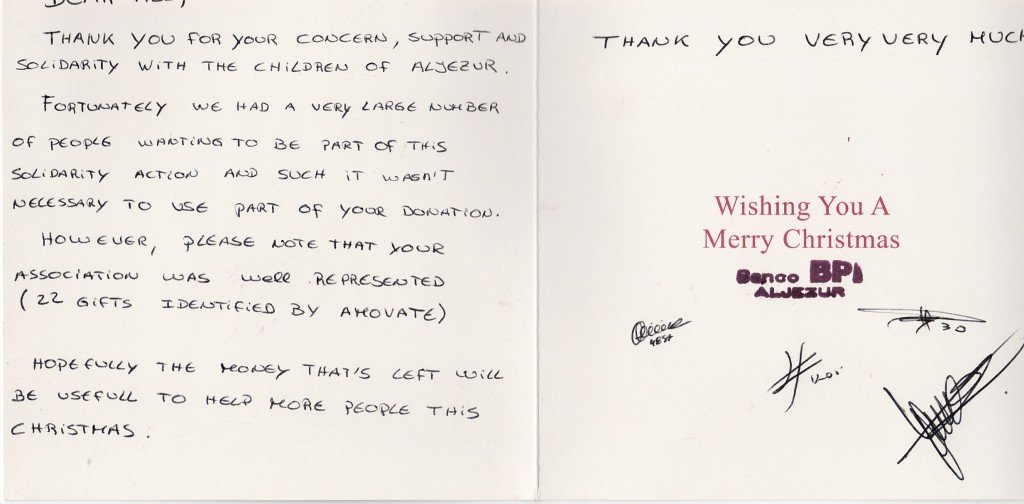 THANK YOU FOR YOUR CONCERN, SUPPORT AND
SOLIDARITY WITH THE CHILDREN OF ALJEZUR.
FORTUNATELY WE HAD A VERY LARGE NUMBER
OF PEOPLE WANTING TO BE PART OF THIS
SOLIDARITY ACTION AND SUCH IT WASN'T
NECESSARY TO USE PART OF YOUR DONATION.
HOWEVER, PLEASE NOTE THAT YOUR
ASSOCIATION WAS WELL REPRESENTED
(22 GIFTS IDENTIFIED BY AMOVATE)
HOPEFULLY THE MONEY THAT'S LEFT WILL
BE USEFULL TO HELP MORE PEOPLE THIS
CHRISTMAS.
THANK YOU VERY VERY MUCH
Wishing You A
Merry Christmas
Banco BPI
ALJEZUR